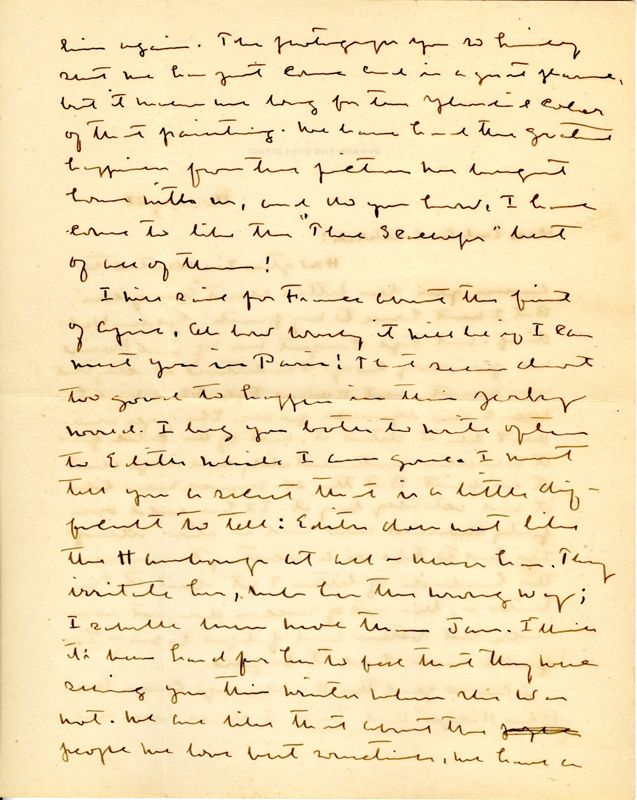 him again. The photograph you so kindly
sent me has just come and is a great pleasure,
but it makes me long for the splendid color
of that painting. We have had the greatest
happiness from the pictures we brought
home with us, and do you know, I have
come to like the "Three Scallops" best
of all of them!
I will sail for France about the first
of April. Oh how lovely it will be if I can
meet you in Paris! That seems almost
too good to happen in this
world. I beg you both to write often
to Edith while I am gone. I must
tell you a secret that is a little dif-
ficult to tell: Edith does not like
the Hambourgs at all – never has. They
irritate her, rub her the wrong way;
I like them
it's been hard for her to feel that they were
seeing you this winter when she was
not. We are like that about the
people we love best sometimes, we have a